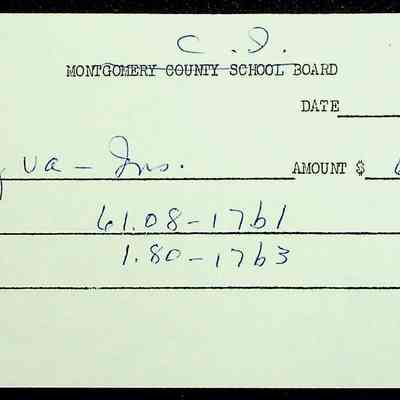 C. I.
MONTGOMERY COUNTY SCHOOL BOARD
DATE
va - Ins. AMOUNT $
61.08-1761
1.80-1763